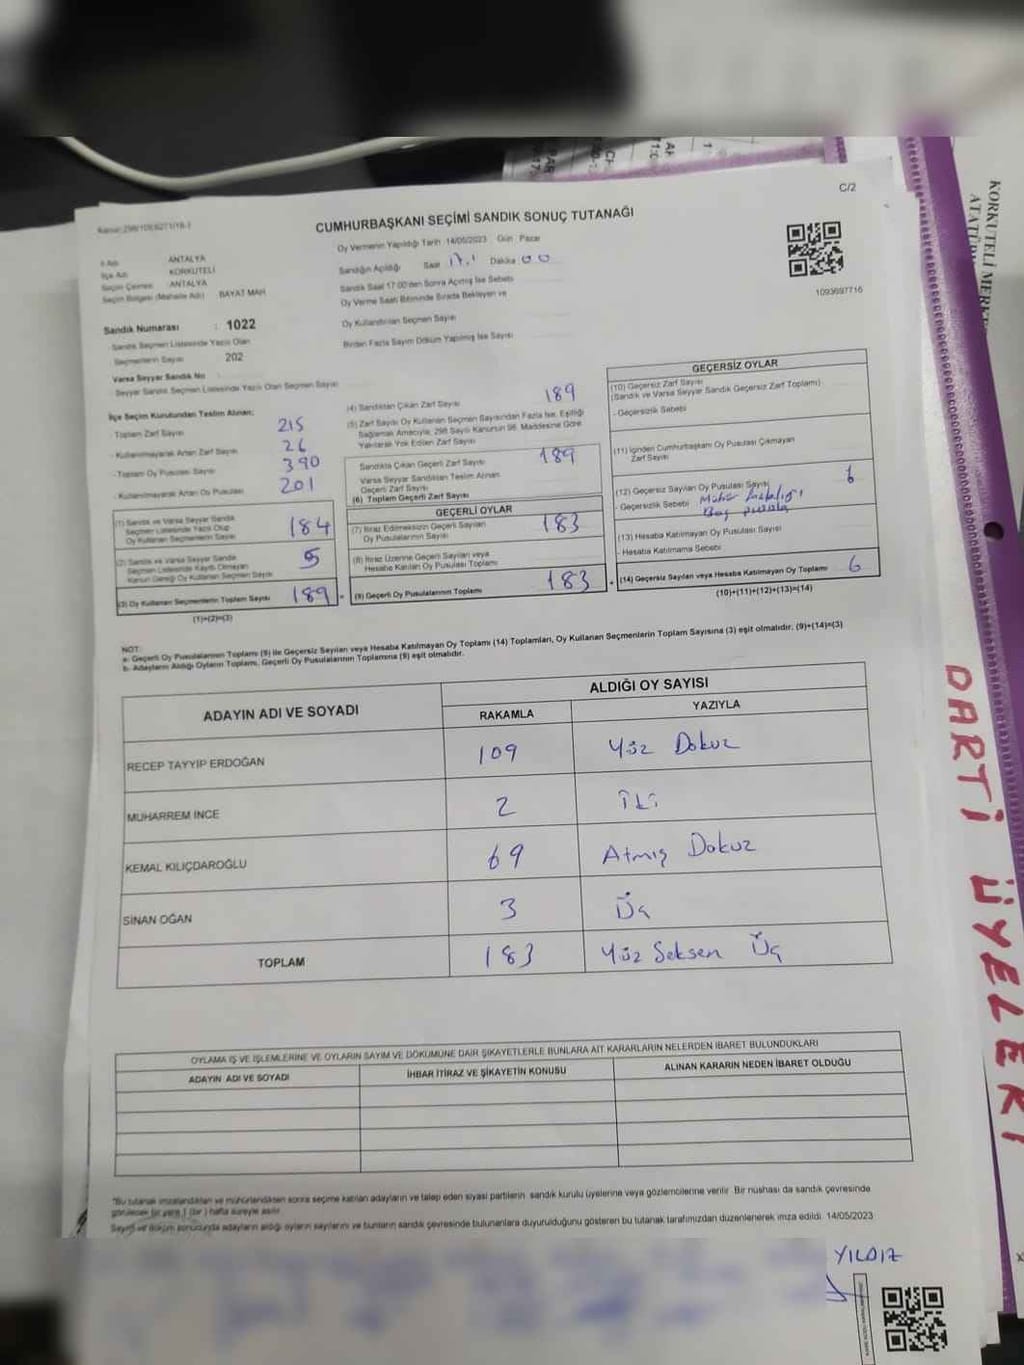 C/2
CUMHURBAŞKANI SEÇİMİ SANDIK SONUÇ TUTANAĞI
Oy Vermenin Yapıldığı Tarih 14/05/2023 Gün Pazar
ANTALYA
KORKUTELİ
ANTALYA
Seçim Bölgesi (Mahalle Adı) BAYAT MAH
Sandığın Açıldığı Saat 17. Dakika 00
Sandık Saat 17:00'den Sonra Açılmış İse Sebebi
Oy Verme Saati Bitiminde Sırada Bekleyen ve
Oy Kullandırılan Seçmen Sayısı
Birden Fazla Sayım Döküm Yapılmış İse Sayısı
1093697716
Sandık Numarası : 1022
Sandık Seçmen Listesinde Yazılı Olan
Seçmenlerin Sayısı 202
Varsa Seyyar Sandık No
Seyyar Sandık Seçmen Listesinde Yazılı Olan Seçmen Sayısı
İlçe Seçim Kurulundan Teslim Alınan;
- Toplam Zarf Sayısı 215
- Kullanılmayarak Artan Zarf Sayısı 26
- Toplam Oy Pusulası Sayısı 390
- Kullanılmayarak Artan Oy Pusulası 201
(1) Sandık ve Varsa Seyyar Sandık
Seçmen Listesinde Yazılı Olup
Oy Kullanan Seçmenlerin Sayısı 184
(2) Sandık ve Varsa Seyyar Sandık
Seçmen Listesinde Kayıtlı Olmayan
Kanun Gereği Oy Kullanan Seçmen Sayısı 5
(3) Oy Kullanan Seçmenlerin Toplam Sayısı 189
(1)+(2)=(3)
(4) Sandıktan Çıkan Zarf Sayısı 189
(5) Zarf Sayısı Oy Kullanan Seçmen Sayısından Fazla İse, Eşitliği
Sağlamak Amacıyla, 298 Sayılı Kanunun 98. Maddesine Göre
Yakılarak Yok Edilen Zarf Sayısı
Sandıkta Çıkan Geçerli Zarf Sayısı 189
Varsa Seyyar Sandıktan Teslim Alınan
Geçerli Zarf Sayısı
(6) Toplam Geçerli Zarf Sayısı
GEÇERLİ OYLAR
(7) İtiraz Edilmeksizin Geçerli Sayılan
Oy Pusulalarının Sayısı 183
(8) İtiraz Üzerine Geçerli Sayılan veya
Hesaba Katılan Oy Pusulası Toplamı
(9) Geçerli Oy Pusulalarının Toplamı 183
GEÇERSİZ OYLAR
(10) Geçersiz Zarf Sayısı
(Sandık ve Varsa Seyyar Sandık Geçersiz Zarf Toplamı)
- Geçersizlik Sebebi
(11) İçinden Cumhurbaşkanı Oy Pusulası Çıkmayan
Zarf Sayısı
(12) Geçersiz Sayılan Oy Pusulası Sayısı 6
- Geçersizlik Sebebi Mühür hatalığı
Boş pusula
(13) Hesaba Katılmayan Oy Pusulası Sayısı
- Hesaba Katılmama Sebebi
(14) Geçersiz Sayılan veya Hesaba Katılmayan Oy Toplamı 6
(10)+(11)+(12)+(13)=(14)
NOT:
a- Geçerli Oy Pusulalarının Toplamı (9) ile Geçersiz Sayılan veya Hesaba Katılmayan Oy Toplamı (14) Toplamları, Oy Kullanan Seçmenlerin Toplam Sayısına (3) eşit olmalıdır. (9)+(14)=(3)
b- Adayların Aldığı Oyların Toplamı, Geçerli Oy Pusulalarının Toplamına (9) eşit olmalıdır.
ADAYIN ADI VE SOYADI
ALDIĞI OY SAYISI
RAKAMLA YAZIYLA
RECEP TAYYİP ERDOĞAN 109 Yüz Dokuz
MUHARREM İNCE 2 İki
KEMAL KILIÇDAROĞLU 69 Atmış Dokuz
SİNAN OĞAN 3 Üç
TOPLAM 183 Yüz Seksen Üç
OYLAMA İŞ VE İŞLEMLERİNE VE OYLARIN SAYIM VE DÖKÜMÜNE DAİR ŞİKAYETLERLE BUNLARA AİT KARARLARIN NELERDEN İBARET BULUNDUKLARI
ADAYIN ADI VE SOYADI İHBAR İTİRAZ VE ŞİKAYETİN KONUSU ALINAN KARARIN NEDEN İBARET OLDUĞU
"Bu tutanak imzalandıktan ve mühürlendikten sonra seçime katılan adayların ve talep eden siyasi partilerin sandık kurulu üyelerine veya gözlemcilerine verilir. Bir nüshası da sandık çevresinde
görülecek bir yere 1 (bir) hafta süreyle asılır.
Sayım ve döküm sonucunda adayların aldığı oyların sayılarını ve bunların sandık çevresinde bulunanlara duyurulduğunu gösteren bu tutanak tarafımızdan düzenlenerek imza edildi. 14/05/2023
YILDIZ
KORKUTELİ
PARTİ ÜYELERİ